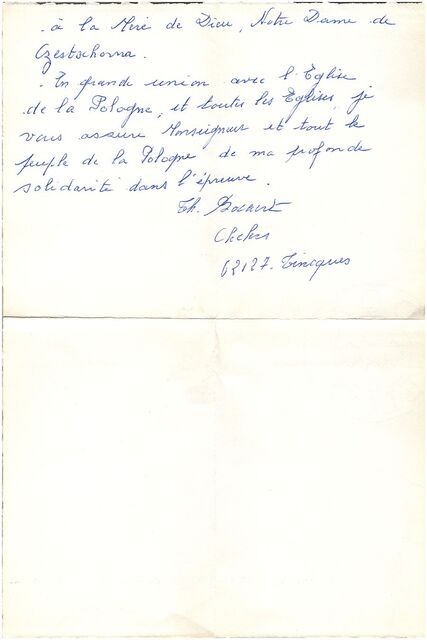 à la Mère de Dieu, Notre Dame de
Czestochowa.
. En grande union avec l'Eglise
de la Pologne, et toutes les Eglises, je
vous assure Monseigneur et tout le
peuple de la Pologne de ma profonde
solidarité dans l'épreuve.
Th.
Chelers
62127. Tincques